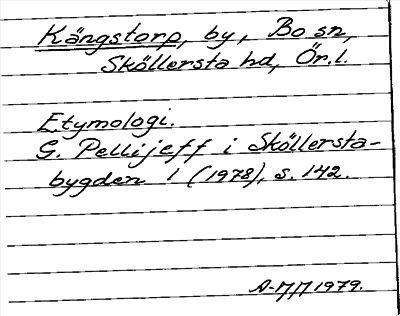 Kängstorp, by, Bo sn,
Sköllersta hd, Ör.l.
Etymologi.
G. Pellijeff i Sköllersta-
bygden 1 (1978), s. 142.
1979.